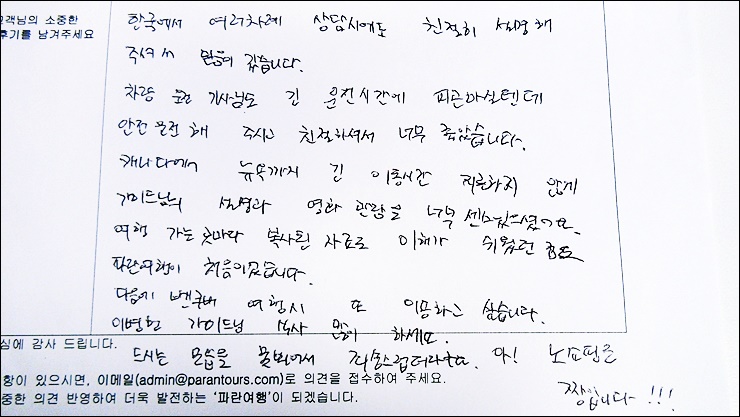 고객님의 소중한
후기를 남겨주세요
한국에서 여러차례 상담시에도 친절히 설명해
주셔서 믿음이 갔습니다.
차량 운전 기사님도 긴 운전시간에 피곤하실텐데
안전운전 해 주시고 친절하셔서 너무 좋았습니다.
캐나다에서 뉴욕까지 긴 이동시간 지루하지 않게
가이드님의 설명과 영화 관람을 너무 센스있으셨어요.
여행 가는 곳마다 복사된 자료로 이해가 쉬웠던 점도
파란여행이 처음이었습니다.
다음에 밴쿠버 여행시 또 이용하고 싶습니다.
이병헌 가이드님 식사 많이 하세요.
심에 감사 드립니다.
드시는 모습을 못봐서 죄송스럽더라구요. 아! 노쇼핑은
짱입니다!!!
항이 있으시면, 이메일(admin@parantours.com)로 의견을 접수하여 주세요.
중한 의견 반영하여 더욱 발전하는 '파란여행'이 되겠습니다.